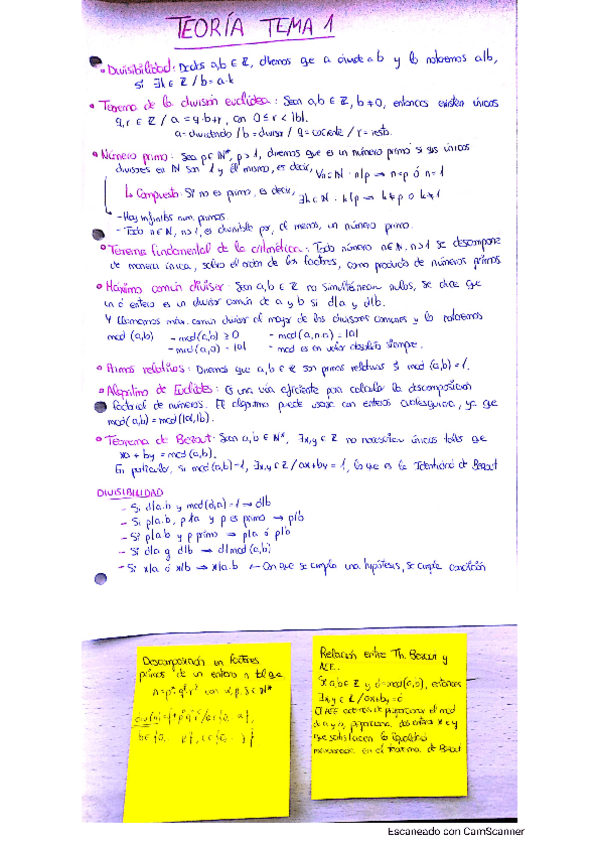 TEORÍA TEMA 1
• Divisibilidad: Dados a,b ∈ ℤ, diremos que a divide a b y lo notaremos a|b,
si ∃k ∈ ℤ / b = a·k
• Teorema de la división euclídea: Sean a,b ∈ ℤ, b ≠ 0, entonces existen únicos
q,r ∈ ℤ / a = q·b+r, con 0 ≤ r < |b|.
a = dividendo / b = divisor / q = cociente / r = resto.
• Número primo: Sea p ∈ ℕ*, p > 1, diremos que es un número primo si sus únicos
divisores en ℕ son 1 y él mismo, es decir, ∀n ∈ ℕ · n|p → n=p ó n=1
↳ Compuesto: Si no es primo, es decir, ∃k ∈ ℕ · k|p → k≠p ó k≠1
- Hay infinitos num. primos.
- Todo n ∈ ℕ, n>1, es divisible por, al menos, un número primo.
• Teorema fundamental de la aritmética: Todo número n ∈ ℕ, n>1 se descompone
de manera única, salvo el orden de los factores, como producto de números primos
• Máximo común divisor: Sean a,b ∈ ℤ no simultáneam nulos, se dice que
un d entero es un divisor común de a y b si d|a y d|b.
Y llamamos máx. común divisor al mayor de los divisores comunes y lo notaremos
mcd (a,b) - mcd(a,b) ≥ 0 - mcd(a, ) = |a|
- mcd(a,0) = |a| - mcd es en valor absoluto siempre.
• Primos relativos: Diremos que a,b ∈ ℤ son primos relativos si mcd (a,b) = 1.
• Algoritmo de Euclides: Es una vía eficiente para calcular la descomposición
factorial de números. El algoritmo puede usarse con enteros cualesquiera, ya que
mcd(a,b) = mcd(|a|,|b|).
• Teorema de Bezout: Sean a,b ∈ ℕ*, ∃x,y ∈ ℤ no necesariam únicos tales que
xa + by = mcd(a,b).
En particular, si mcd(a,b)=1, ∃x,y ∈ ℤ / ax+by = 1, lo que es la Identidad de Bezout
DIVISIBILIDAD
- Si d|a·b y mcd(d,a) = 1 → d|b
- Si p|a·b, p∤a y p es primo → p|b
- Si p|a·b y p primo → p|a ó p|b
- Si d|a y d|b → d|mcd(a,b)
- Si x|a ó x|b → x|a·b ← Con que se cumpla una hipótesis, se cumple condición
Descomposición en factores
primos de un entero n tal que
n = p q r con α, β, ∈ ℕ*
Relación entre Th. Bezout y
AEE.
Si a,b ∈ ℤ y d=mcd(a,b), entonces
∃x,y ∈ ℤ / ax+by = d
El AEE además de proporcionar el mcd
de a y b, proporciona dos enteros x e y
que satisfacen la igualdad
mencionada en el teorema de Bezout
Escaneado con CamScanner